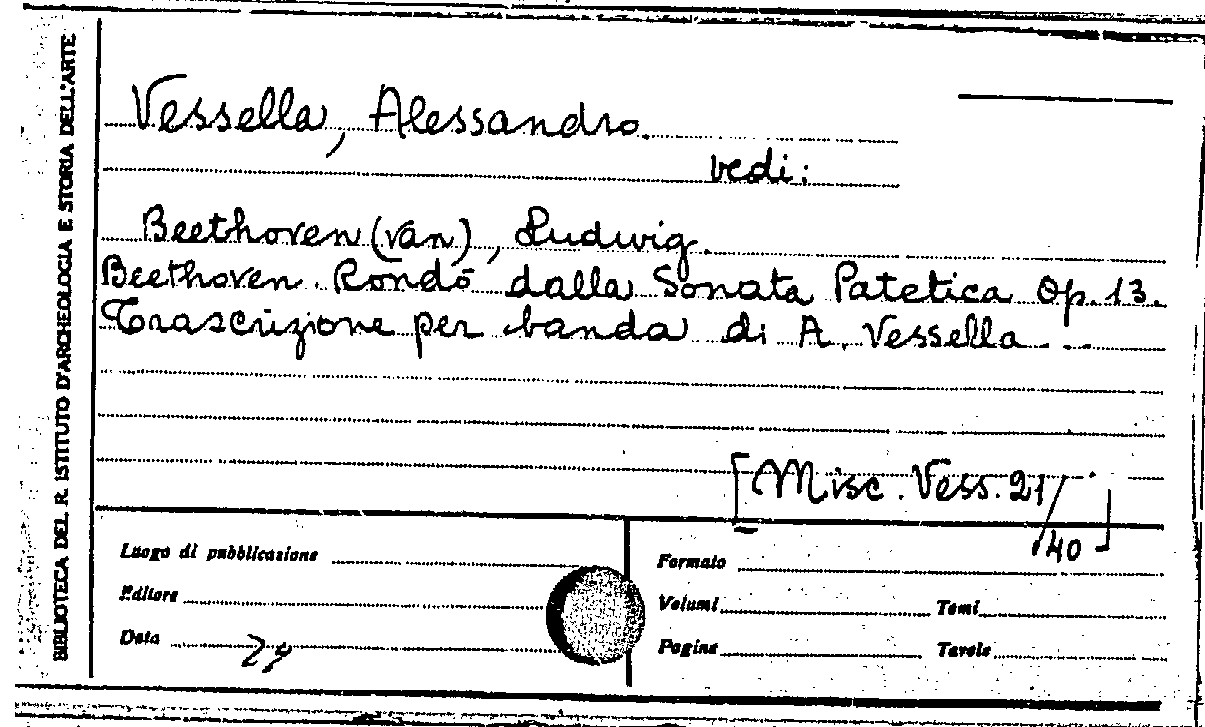 BIBLIOTECA DEL R. ISTITUTO D'ARCHEOLOGIA E STORIA DELL'ARTE
Vessella, Alessandro.
vedi:
Beethoven (van), Ludwig.
Beethoven. Rondò dalla Sonata Patetica Op. 13.
Trascrizione per banda di A. Vessella...
[Misc. Vess. 21/40]
Luogo di pubblicazione
Editore
Data
Formato
Volumi Tomi
Pagine Tavole